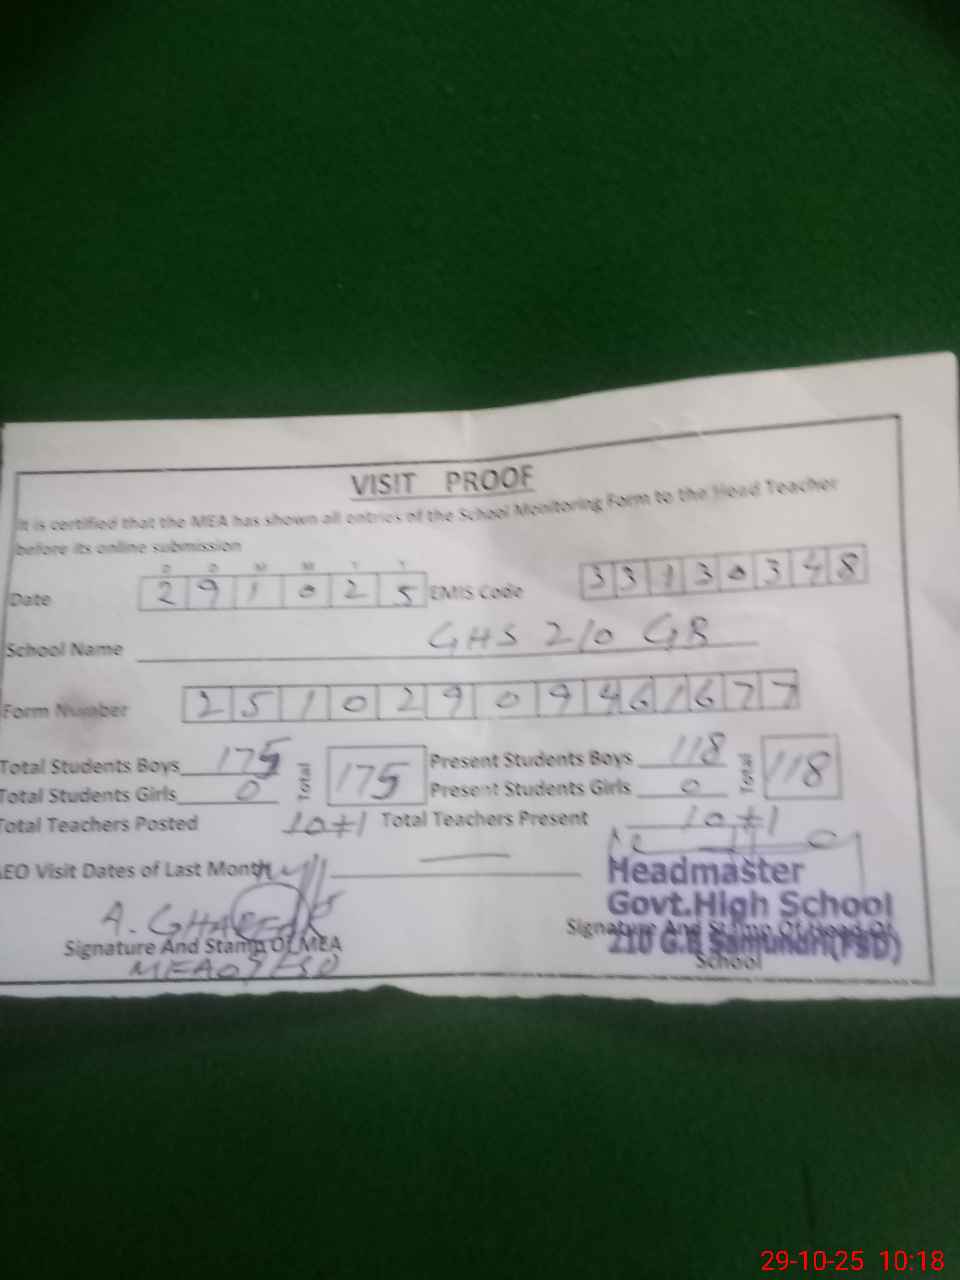 VISIT PROOF
It is certified that the MEA has shown all entries of the School Monitoring Form to the Head Teacher
before its online submission
D D M M Y Y
Date 2 9 1 0 2 5 EMIS Code 3 3 1 3 0 3 4 8
School Name GHS 210 GB
Form Number 2 5 1 0 2 9 0 9 4 6 1 6 7 7
Total Students Boys 175 Total 175 Present Students Boys 118 Total 118
Total Students Girls 0 Present Students Girls 0
Total Teachers Posted 10+1 Total Teachers Present 10+1
AEO Visit Dates of Last Month
Headmaster
Govt.High School
210 G.B Samundri(FSD)
A. GHAFFAR
Signature And Stamp Of MEA
Signature And Stamp Of Head Of
School
29-10-25 10:18